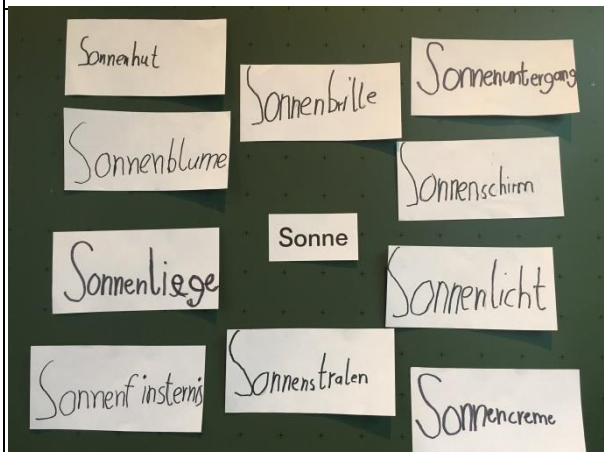 Sonnenhut
Sonnenbrille
Sonnenuntergang
Sonnenblume
Sonnenschirm
Sonne
Sonnenliege
Sonnenlicht
Sonnenfinsternis
Sonnenstralen
Sonnencreme